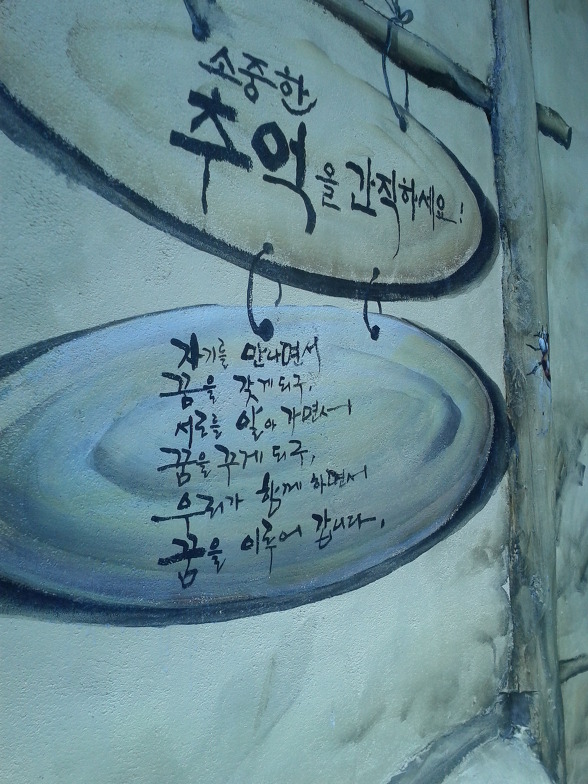 소중한
추억을 간직하세요!
자기를 만나면서
꿈을 갖게 되구,
서로를 알아가면서
꿈을 꾸게 되구,
우리가 함께 하면서
꿈을 이루어 갑니다.